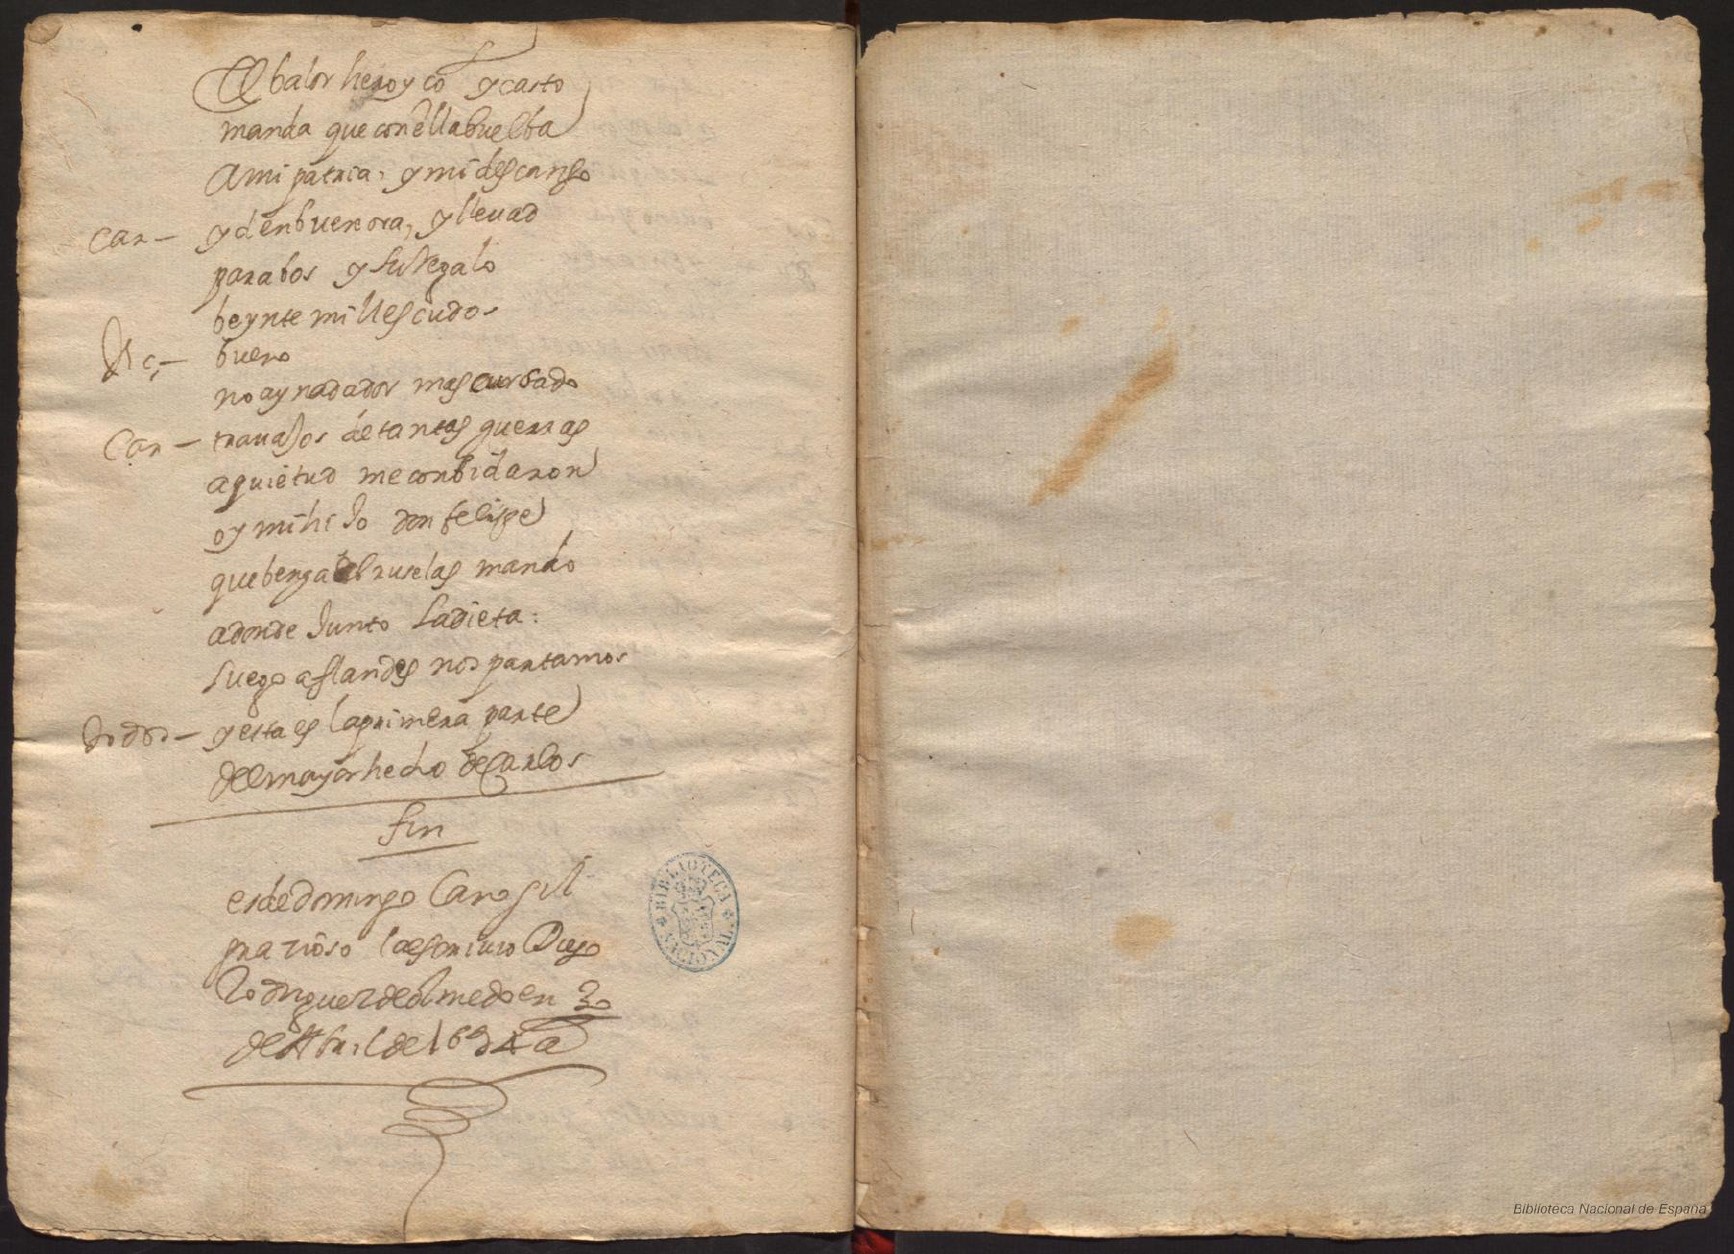 El balor heroyco y casto
manda que con ella buelba
a mi patria, y mi descanso
Car— yd en buen ora, y lleuad
para bos y su Regalo
beynte mill escudos
bueno
no ay nadador mas cursado
Car— trauajos de tantas guerras
a quietud me conbidaron
oy mi hijo don felipe
que benga a bruselas mando
adonde Junto la dieta:
luego a flandes nos partamos
todos— y esta es la primera parte
del mayor hecho de Carlos
fin
es de domingo Cano gil
grazioso la escriuio Diego
Rodriguez de olmedo en 30
de Abril de 1634 a
BIBLIOTECA NACIONAL
Biblioteca Nacional de España